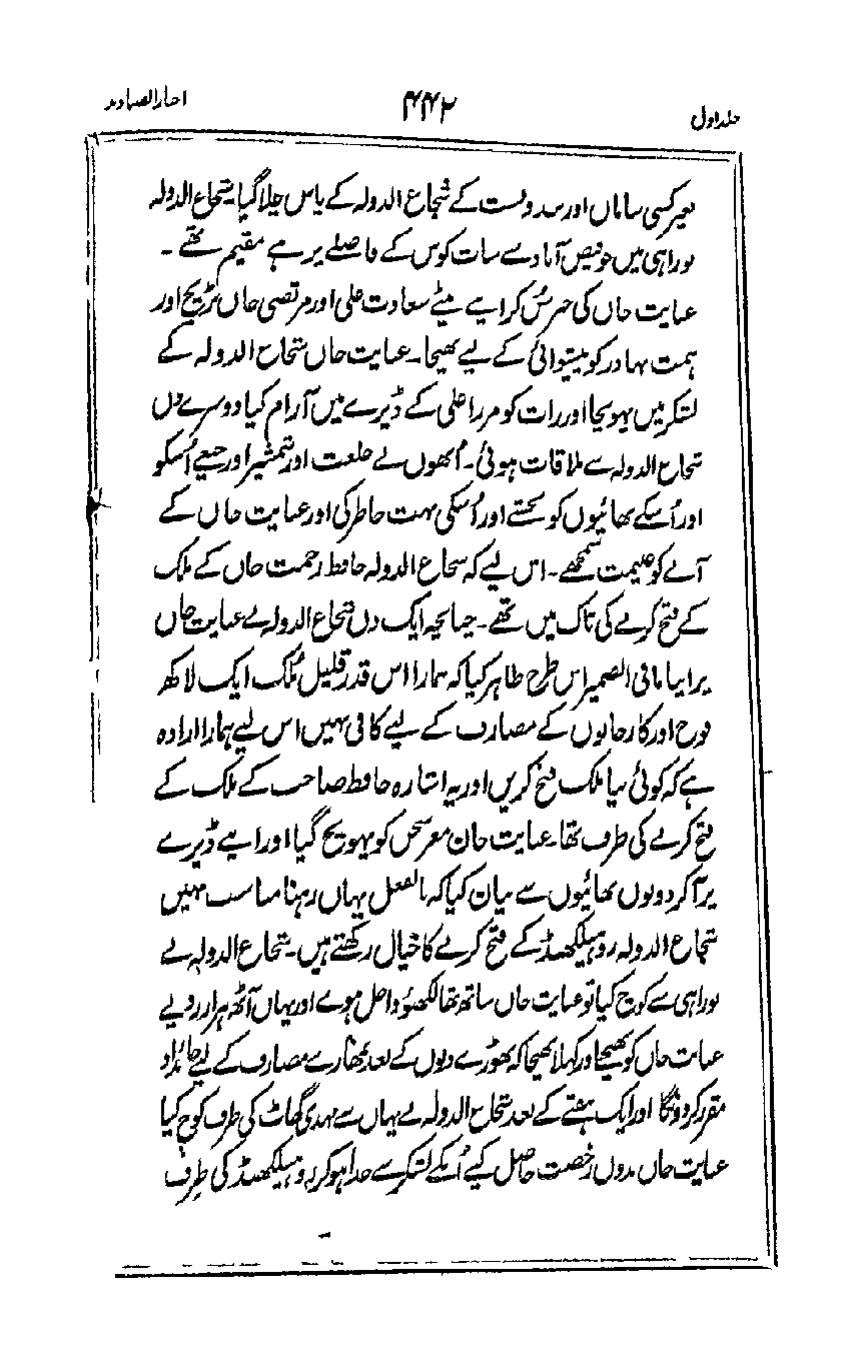 جلد اول ۴۴۲ اخبار الصنادید
بغیر کسی ساماں اور بندوبست کے شجاع الدولہ کے پاس چلا گیا۔ شجاع الدولہ
نوراہی میں جو فیض آباد سے سات کوس کے فاصلے پر ہے مقیم تھے۔
عنایت خاں کی خبر سُن کر اپنے بیٹے سعادت علی اور مرتضی خاں بڑیچ اور
ہمت بہادر کو پیشوائی کے لیے بھیجا۔ عنایت خاں شجاع الدولہ کے
لشکر میں پہونچا اور رات کو مرزا علی کے ڈیرے میں آرام کیا دوسرے دن
شجاع الدولہ سے ملاقات ہوئی۔ اُنھوں نے خلعت اور شمشیر اور جیغے اُسکو
اور اُسکے بھائیوں کو بخشے اور اُسکی بہت خاطر کی اور عنایت خاں کے
آنے کو غنیمت سمجھے۔ اس لیے کہ شجاع الدولہ حافظ رحمت خاں کے ملک
کے فتح کرنے کی تاک میں تھے۔ چنانچہ ایک دن شجاع الدولہ نے عنایت خاں
پر اپنا مافی الضمیر اس طرح ظاہر کیا کہ ہمارا اس قدر قلیل مُلک ایک لاکھ
فوج اور کارخانوں کے مصارف کے لیے کافی نہیں اس لیے ہمارا ارادہ
ہے کہ کوئی نیا ملک فتح کریں اور یہ اشارہ حافظ صاحب کے ملک کے
فتح کرنے کی طرف تھا۔ عنایت خان مغز سخن کو پہونچ گیا اور اپنے ڈیرے
پر آ کر دونوں بھائیوں سے بیان کیا کہ بالفعل یہاں رہنا مناسب نہیں
شجاع الدولہ روہیلکھنڈ کے فتح کرنے کا خیال رکھتے ہیں۔ شجاع الدولہ نے
نوراہی سے کوچ کیا تو عنایت خاں ساتھ تھا لکھنؤ داخل ہوے اور یہاں آٹھ ہزار روپے
عنایت خاں کو بھیجے اور کہلا بھیجا کہ تھوڑے دنوں کے بعد تمھارے مصارف کے لیے جائداد
مقرر کر دونگا اور ایک ہفتے کے بعد شجاع الدولہ نے یہاں سے مہدی گھاٹ کی طرف کوچ کیا
عنایت خاں بدوں رخصت حاصل کیے اُنکے لشکر سے جدا ہو کر روہیلکھنڈ کی طرف